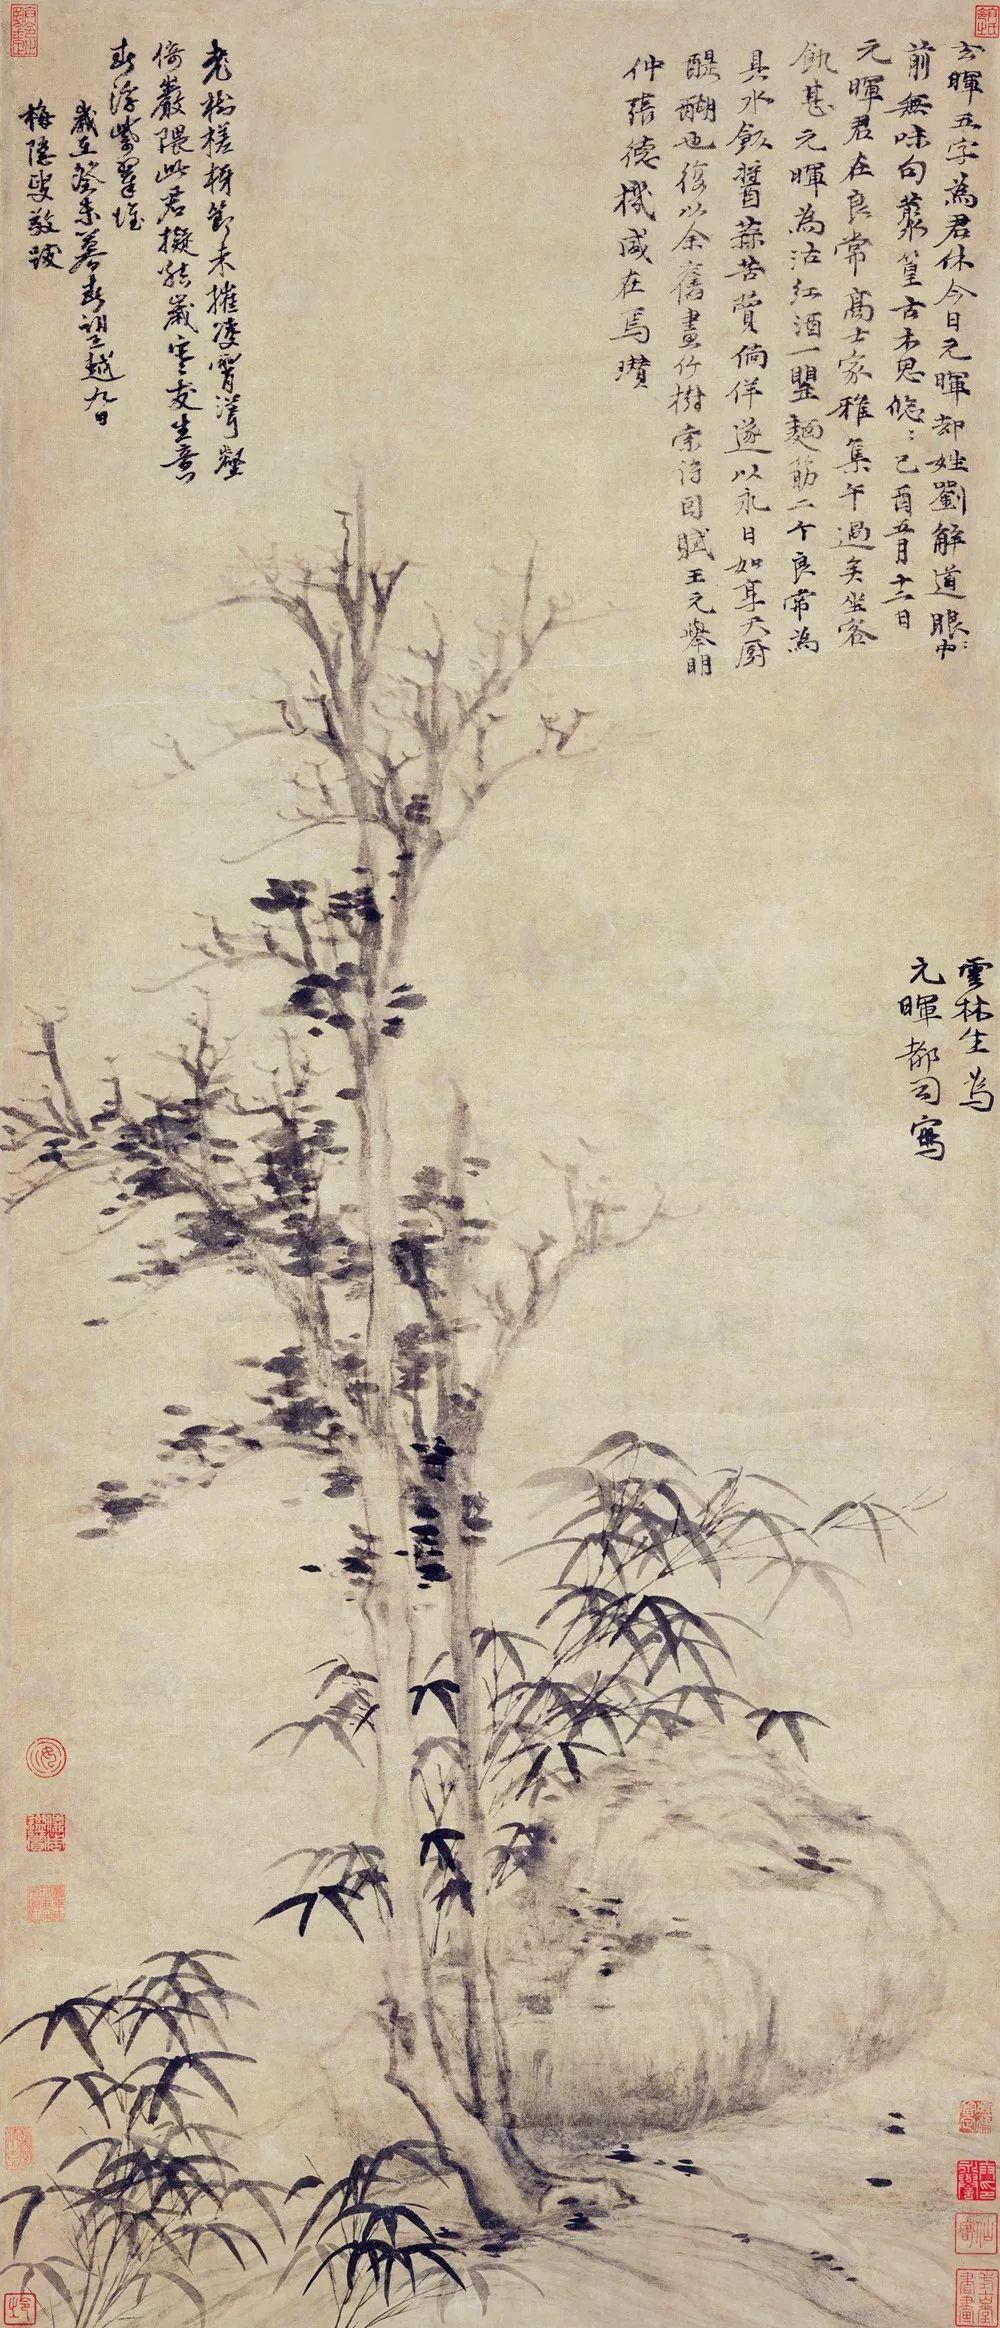 玄暉五字為君休今日元暉却姓劉解道眼〻中
前無味句叢篁古木思悠〻己酉五月十二日
元暉君在良常高士家雅集午過矣坐客
飢甚元暉為沽紅酒一罌麵筋二个良常為
具水飯醬蒜苦蕒徜徉遂以永日如享天厨
醍醐也復以余舊畫竹樹索詩因賦王元舉明
仲張德機咸在焉瓚
老樹槎枒節未摧凌霄
倚巖隈此君擬結歲寒友生意
春浮紫翠堆
歲在癸未暮春望越九日
梅隱叟敬跋
雲林生為
元暉都司寫